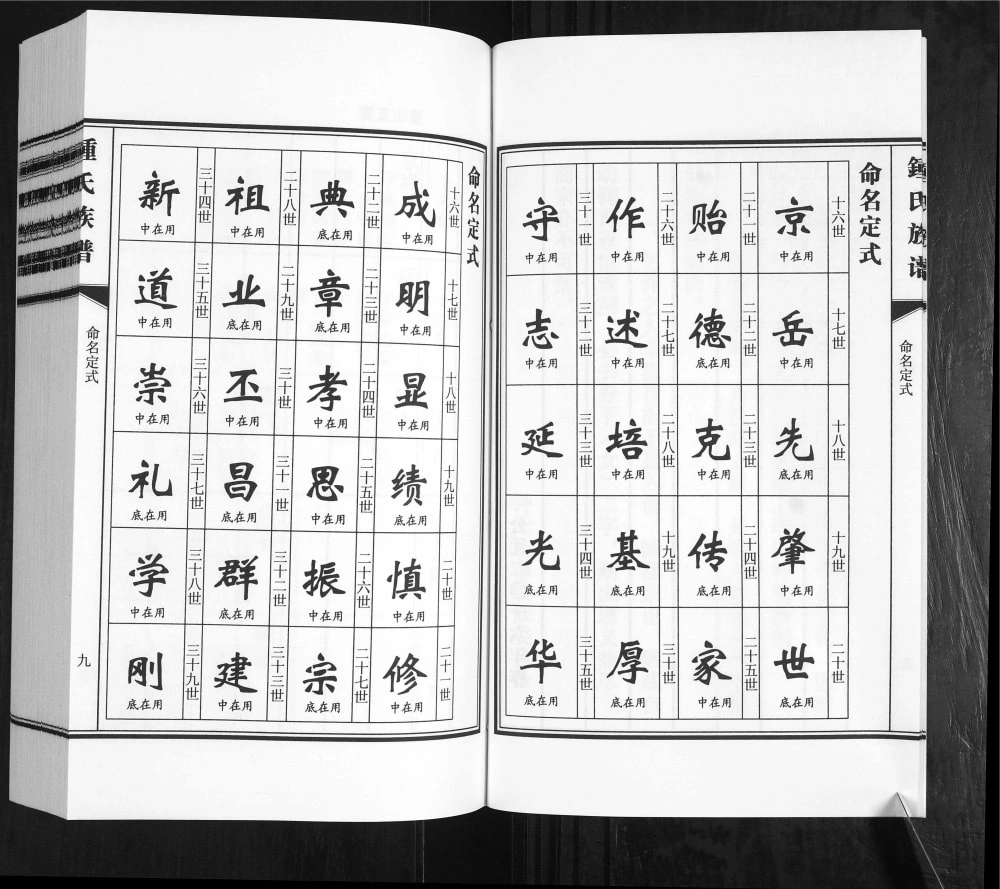 鍾氏族谱
命名定式
命名定式
十六世
京
中在用
十七世
岳
中在用
十八世
先
底在用
十九世
肇
中在用
二十世
世
底在用
二十一世
贻
中在用
二十二世
德
底在用
二十三世
克
中在用
二十四世
传
底在用
二十五世
家
中在用
二十六世
作
中在用
二十七世
述
中在用
二十八世
培
中在用
十九世
基
底在用
三十世
厚
底在用
三十一世
守
中在用
三十二世
志
中在用
三十三世
延
中在用
三十四世
光
底在用
三十五世
华
底在用
命名定式
十六世
成
中在用
十七世
明
中在用
十八世
显
中在用
十九世
绩
底在用
二十世
慎
中在用
二十一世
修
中在用
二十二世
典
底在用
二十三世
章
底在用
二十四世
孝
中在用
二十五世
思
中在用
二十六世
振
中在用
二十七世
宗
底在用
二十八世
祖
中在用
二十九世
业
底在用
三十世
丕
中在用
三十一世
昌
底在用
三十二世
群
底在用
三十三世
建
中在用
三十四世
新
中在用
三十五世
道
中在用
三十六世
崇
中在用
三十七世
礼
底在用
三十八世
学
中在用
三十九世
刚
底在用
鍾氏族谱
命名定式
九